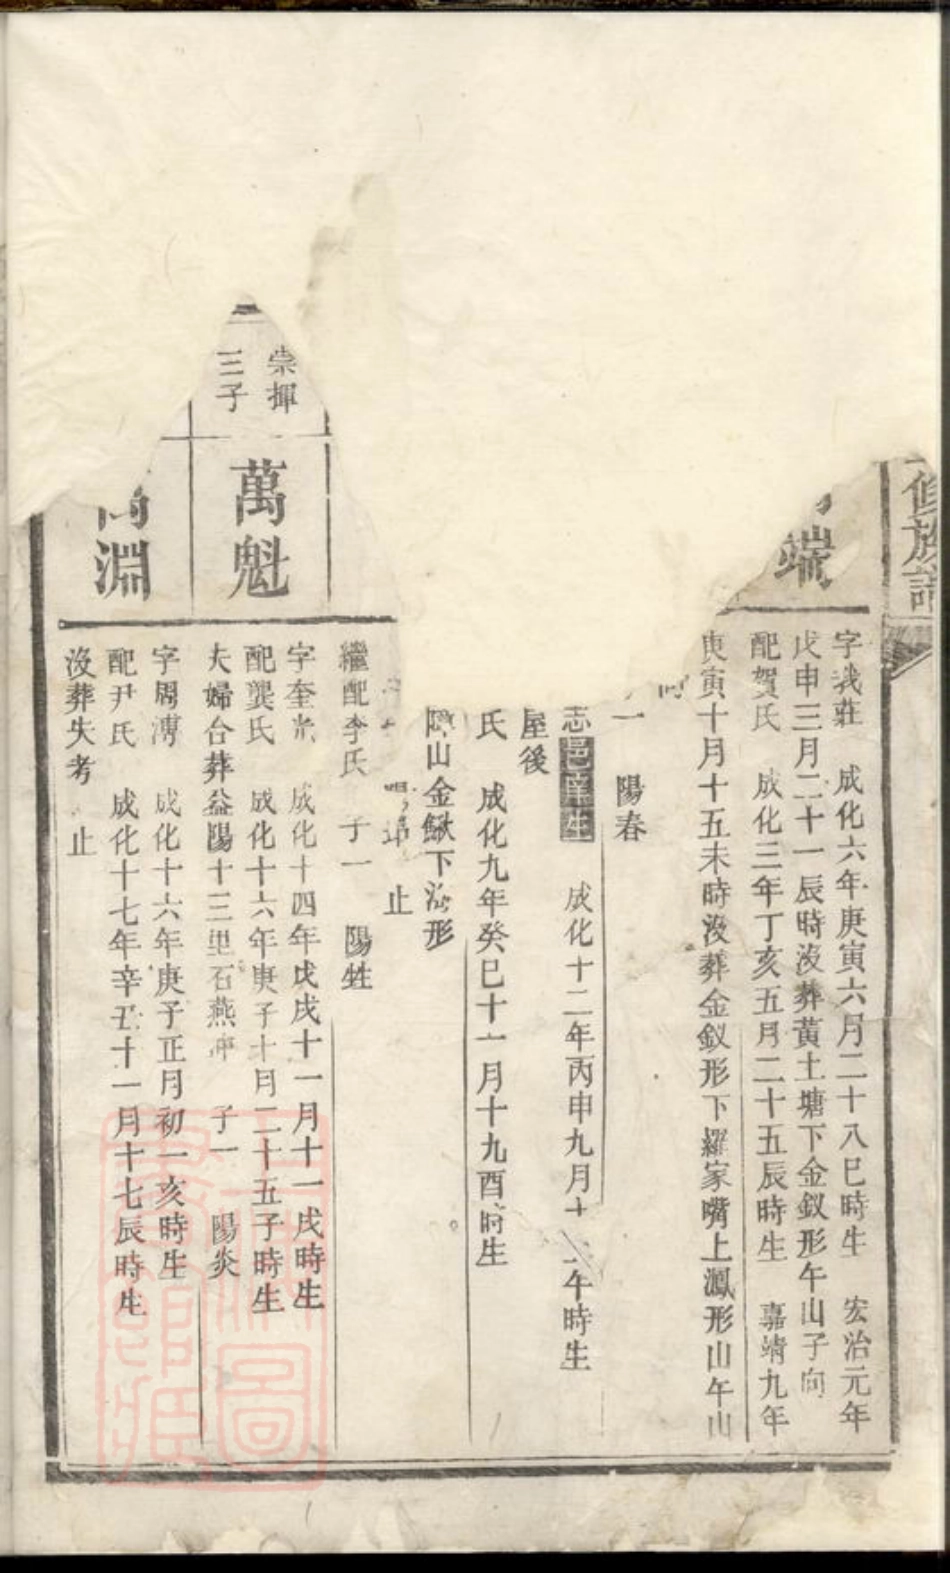 修族譜
端
字我莊 成化六年庚寅六月二十八巳時生 宏治元年
戊申三月二十一辰時沒葬黃土塘下金釵形午山子向
配賀氏 成化三年丁亥五月二十五辰時生 嘉靖九年
庚寅十月十五未時沒葬金釵形下羅家嘴上鳳形山午山
向
一 陽春
志邑庠生 成化十二年丙申九月十二午時生
屋後
氏 成化九年癸巳十一月十九酉時生
山金鰍下海形
止
繼配李氏 子一 陽甡
崇揮
三子
萬魁
字奎光 成化十四年戊戌十一月十一戌時生
配龔氏 成化十六年庚子十月二十五子時生
夫婦合葬益陽十三里石燕冲 子一 陽炎
萬淵
字周溥 成化十六年庚子正月初一亥時生
配尹氏 成化十七年辛丑十一月十七辰時生
沒葬失考 止